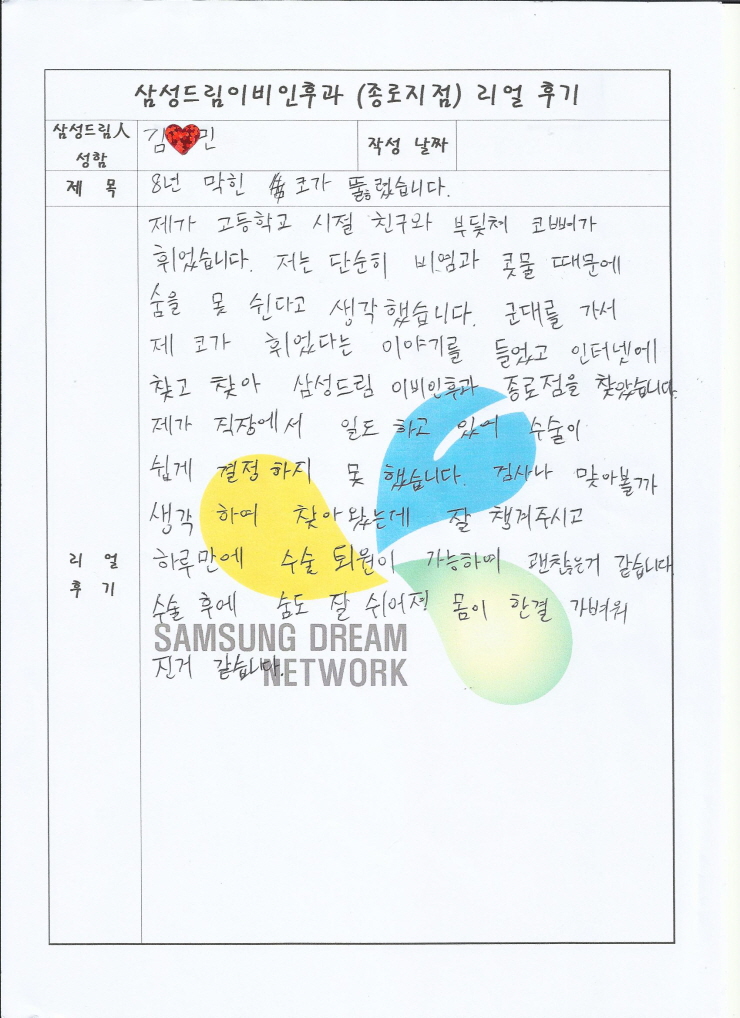 삼성드림이비인후과 (종로지점) 리얼 후기
삼성드림人 성함 김♥민 작성 날짜
제 목 8년 막힌 코가 뚫렸습니다.
제가 고등학교 시절 친구와 부딪쳐 코뼈가
휘었습니다. 저는 단순히 비염과 콧물 때문에
숨을 못 쉰다고 생각했습니다. 군대를 가서
제 코가 휘었다는 이야기를 들었고 인터넷에
찾고 찾아 삼성드림 이비인후과 종로점을 찾았습니다
제가 직장에서 일도 하고 있어 수술이
쉽게 결정하지 못 했습니다. 검사나 맞아볼까
생각 하여 찾아왔는데 잘 챙겨주시고
리 얼 하루만에 수술 퇴원이 가능하여 괜찮은거 같습니다
후 기 수술 후에 숨도 잘 쉬어져 몸이 한결 가벼워
SAMSUNG DREAM
진거 같습니다.
NETWORK